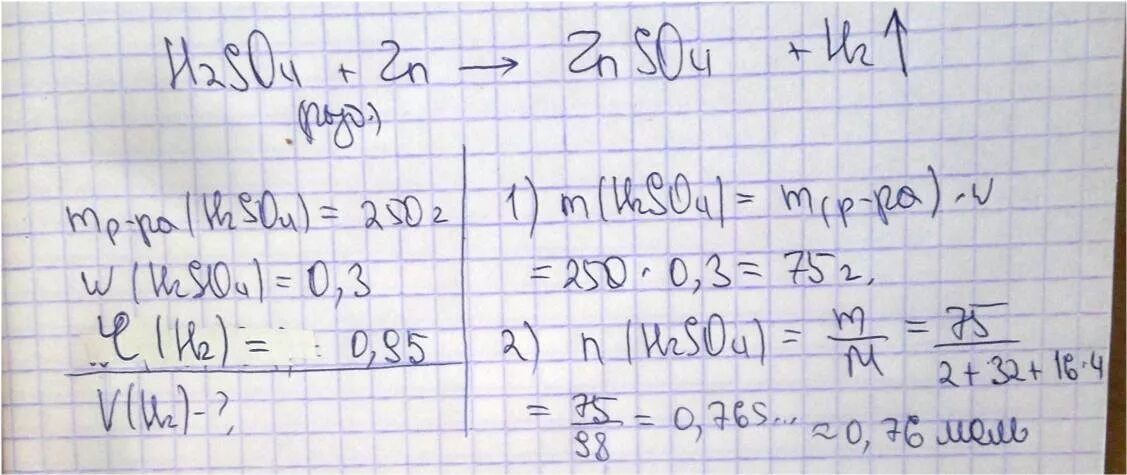 H₂SO₄ + Zn → ZnSO₄ + H₂↑
(разб.)
mр-ра(H₂SO₄) = 250г
w(H₂SO₄) = 0,3
φ(H₂) = 0,95
V(H₂) - ?
1) m(H₂SO₄) = m(р-ра)·w
= 250 · 0,3 = 75г.
2) n(H₂SO₄) = m/M = 75/(2+32+16·4)
= 75/98 = 0,765... ≈ 0,76 моль